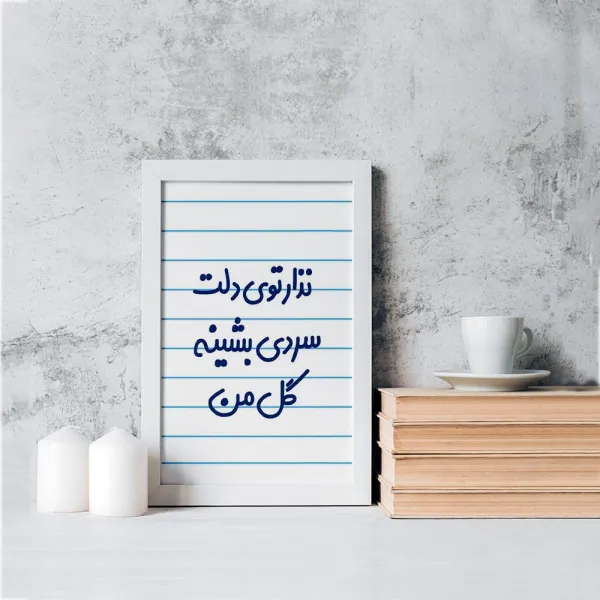 نذار توی دلت
سردی بشینه
گل من